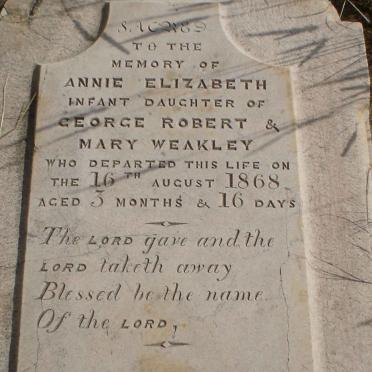 SACRED
TO THE
MEMORY OF
ANNIE ELIZABETH
INFANT DAUGHTER OF
GEORGE ROBERT &
MARY WEAKLEY
WHO DEPARTED THIS LIFE ON
THE 16TH AUGUST 1868
AGED 3 MONTHS & 16 DAYS
The LORD gave and the
LORD taketh away
Blessed be the name
Of the LORD,